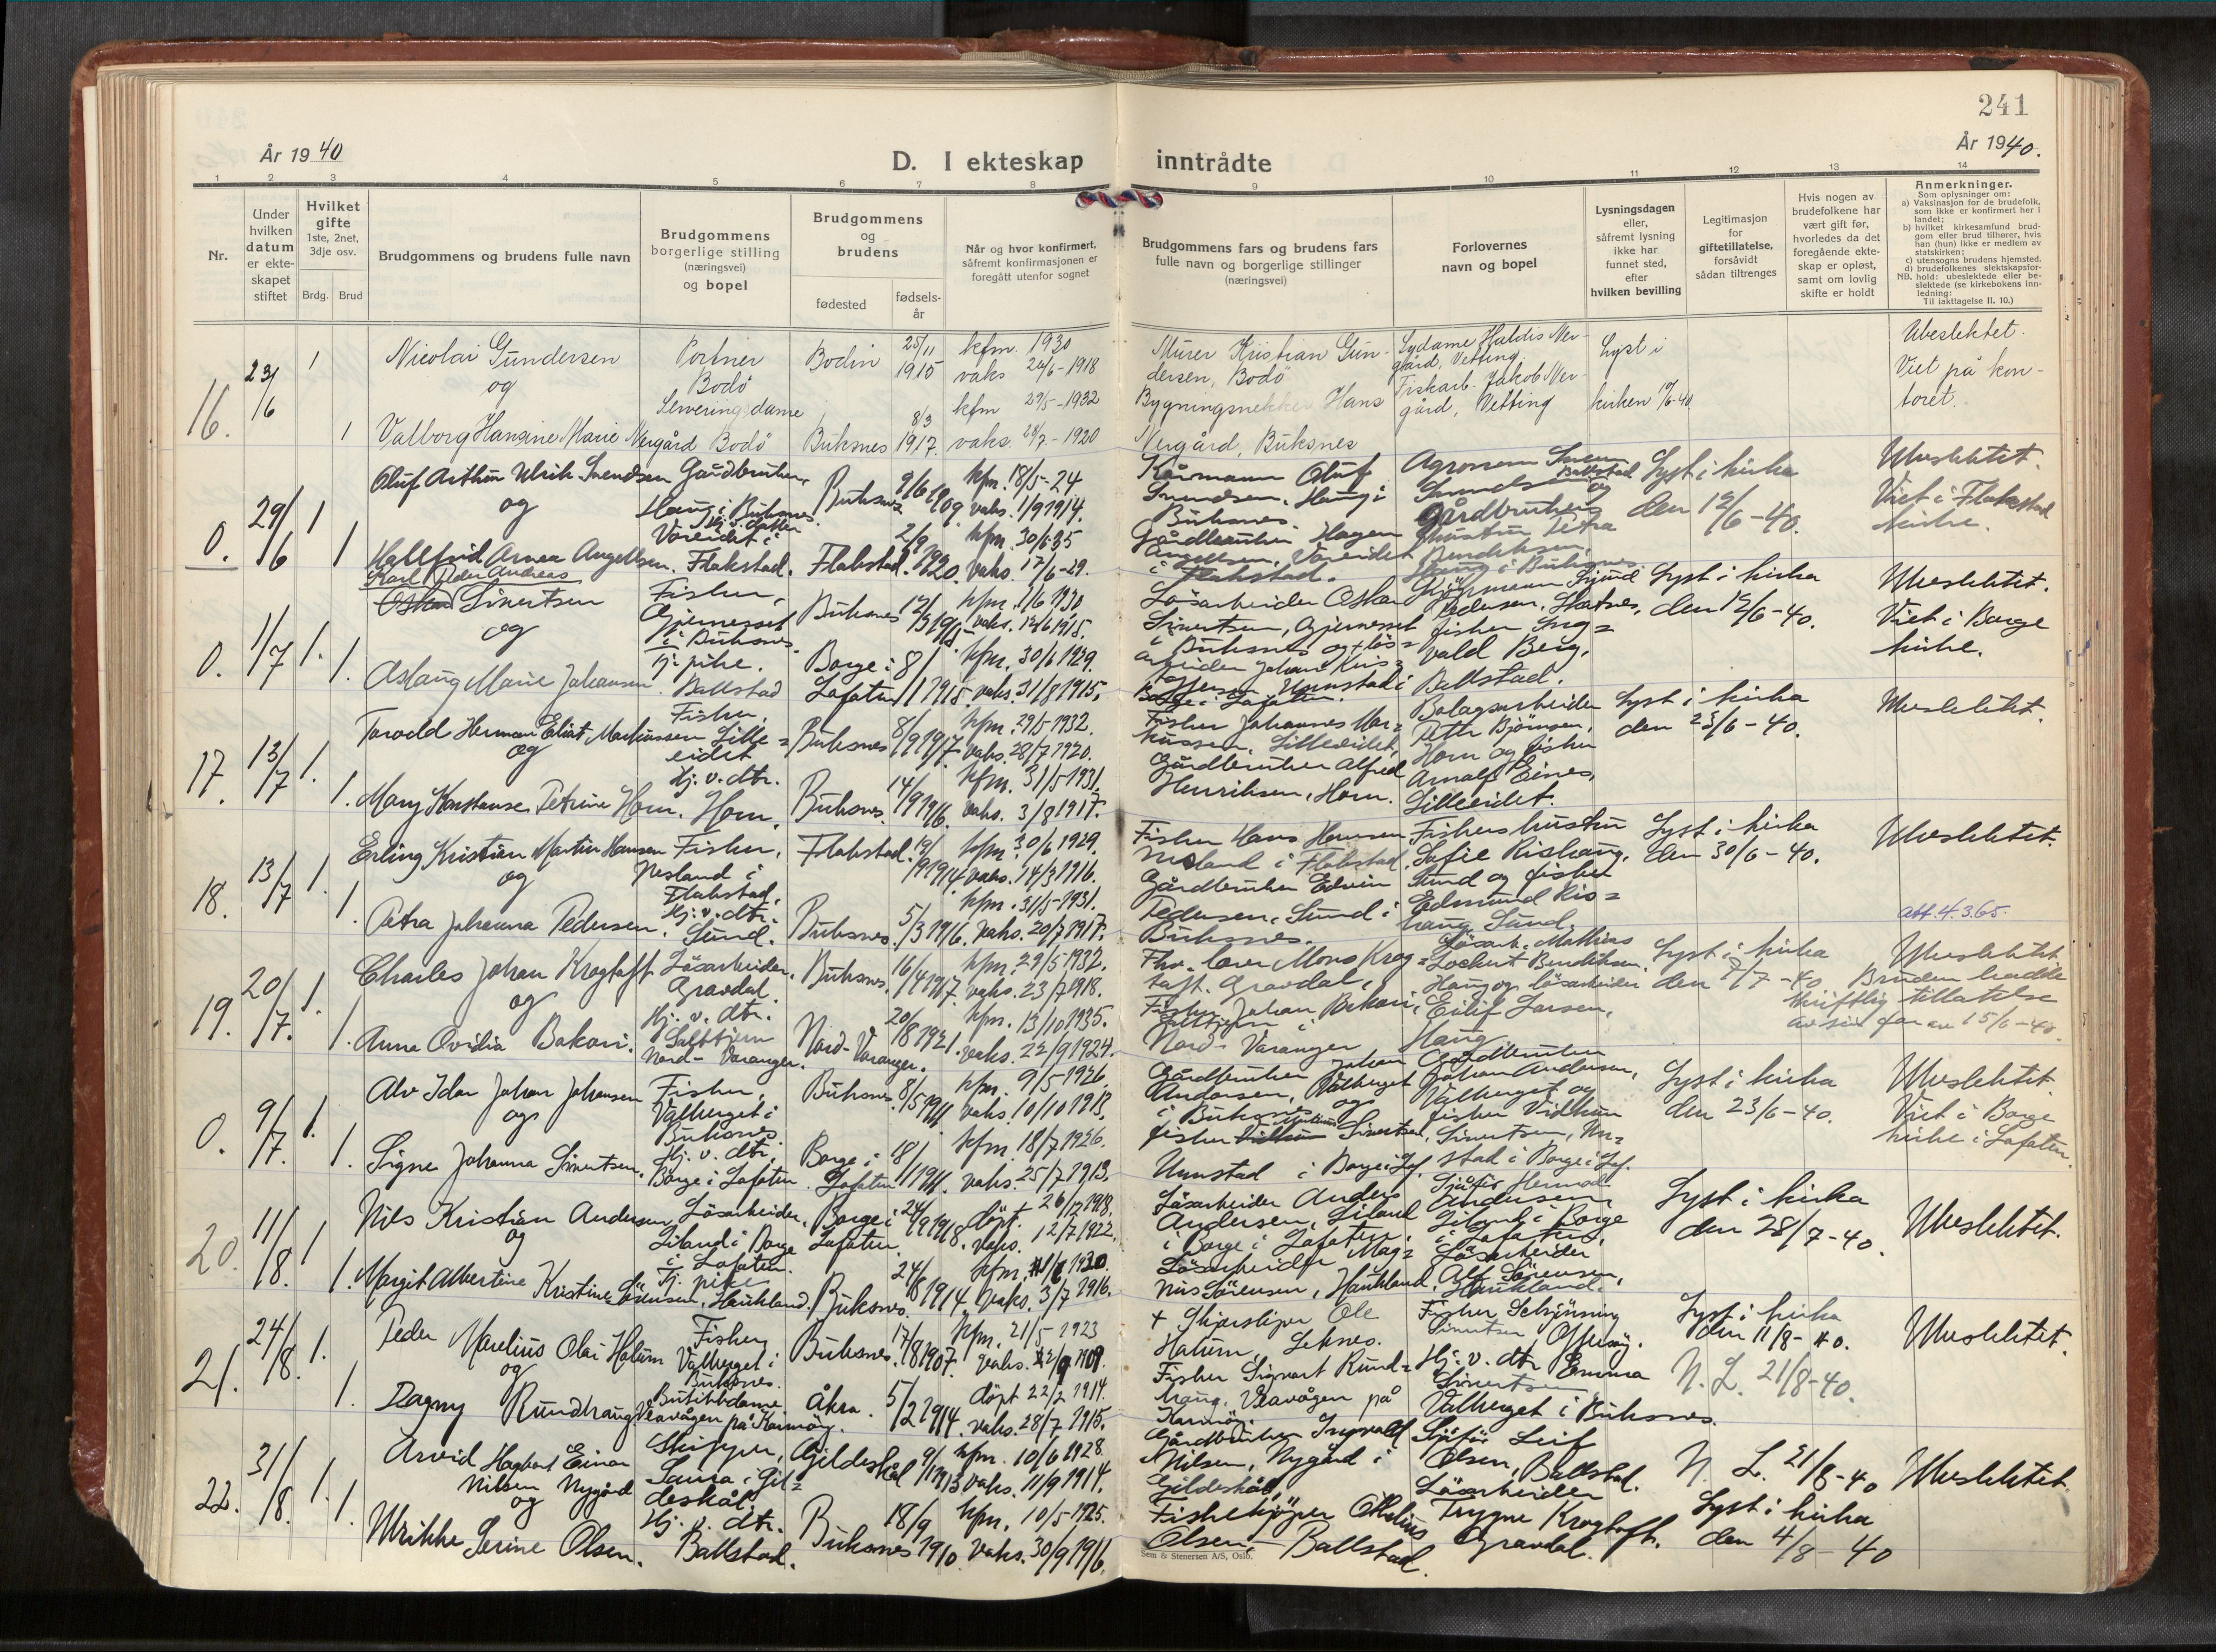 241
År 1940
År 1940.
D. I ekteskap inntrådte
1 2 3 4 5 6 7 8 9 10 11 12 13 14
Nr.
Under
hvilken
datum
er ekte-
skapet
stiftet
Hvilket
gifte
1ste, 2net,
3dje osv.
Brdg. Brud
Brudgommens og brudens fulle navn
Brudgommens
borgerlige stilling
(næringsvei)
og bopel
Brudgommens
og
brudens
fødested
fødsels-
år
Når og hvor konfirmert,
såfremt konfirmasjonen er
foregått utenfor sognet
Brudgommens fars og brudens fars
fulle navn og borgerlige stillinger
(næringsvei)
Forlovernes
navn og bopel
Lysningsdagen
eller,
såfremt lysning
ikke har
funnet sted,
efter
hvilken bevilling
Legitimasjon
for
giftetillatelse,
forsåvidt
sådan tiltrenges
Hvis nogen av
brudefolkene har
vært gift før,
hvorledes da det
foregående ekte-
skap er opløst,
samt om lovlig
skifte er holdt
Anmerkninger.
Som oplysninger om:
a) Vaksinasjon for de brudefolk,
som ikke er konfirmert her i
landet;
b) hvilket kirkesamfund brud-
gom eller brud tilhører, hvis
han (hun) ikke er medlem av
statskirken;
c) utensogns brudens hjemsted.
d) brudefolkenes slektskapsfor-
NB. hold: ubeslektede eller be-
slektede (se kirkebokens inn-
ledning:
Til iakttagelse II. 10.)
16.
23/6
1
Nicolai Gundersen
og
1
Valborg Hansine Marie Nergård
Portner
Bodö
Serveringsdame
Bodö
Bodin
25/11
1915
Buksnes
8/3
1917
kfm. 1930
vaks 24/6-1918
kfm 29/5-1932
vaks. 28/7-1920
Murer Kristian Gun-
dersen, Bodö
Bygningssnekker Hans
Nergård, Buksnes
Sydame Haldis Ner-
gård, Vetting.
Fiskarb. Jakob Ner-
gård, Vetting
Lyst i
kirken 1/6-40
Ubeslektet.
Viet på kon-
toret.
0.
29/6
1
Oluf Arthur Ulrik Svendsen
og
1
Hallfrid Arnea Angellsen.
Gårdbruker,
Haug i Buksnes.
Hj. v. datter
Voreidet i
Flakstad.
Buksnes
9/6 1909.
Flakstad.
2/9 1920.
kfm. 18/5-24
vaks. 1/9 1914.
kfm. 30/6 35
vaks. 17/6-29.
Kårmann Oluf
Svendsen, Haug i
Buksnes.
Gårdbruker Hagen
Angellsen, Voreidet
i Flakstad.
Agronom
Ballstad
og
Gårdbrukers
hustru Petra
Bendiksen,
Haug i Buksnes.
Lyst i kirka
den 12/6-40.
Ubeslektet.
Viet i Flakstad
kirke.
0.
1/7
1.
Karl Peder Andreas
Oskar Sivertsen
og
1.
Aslaug Marie Johansen.
Fisker,
Gjerneset
i Buksnes.
Tj. pike.
Ballstad
Buksnes
12/3 1915.
Borge i
Lofoten
8/1 1915.
kfm. 1/6 1930
vaks. 12/6 1918.
kfm. 30/6 1929.
vaks. 31/8 1915.
Lösarbeider Oskar
Sivertsen, Gjerneset
i Buksnes og lös-
arbeider Johan Kris-
Unnstad i
Borge i Lofoten.
Sjurd
Pedersen,
fisker Ing-
vald Berg,
Ballstad.
Lyst i kirka
den 12/6-40.
Ubeslektet.
Viet i Borge
kirke.
17.
13/7
1.
Torodd Herman Eliot Markussen
og
1.
Mary Konstanse Petrine Horn.
Fisker,
Lille-
eidet
Hj. v. dtr.
Horn.
Buksnes
8/9 1917.
Buksnes.
14/9 1916.
kfm. 29/5 1932.
vaks. 28/7 1920.
kfm. 31/5 1931.
vaks. 3/8 1917.
Fisker Johannes Mar-
kussen, Lilleeidet,
Gårdbruker Alfred
Henriksen, Horn.
Bolagsarbeider
Petter Björnsen,
Horn og fisker
Arnolf Eines,
Lilleeidet.
Lyst i kirka
den 23/6-40.
Ubeslektet.
18.
13/7
1.
Erling Kristian Martin Hansen
og
1.
Petra Johanna Pedersen.
Fisker,
Nesland i
Flakstad.
Hj. v. dtr.
Sund.
Flakstad.
Buksnes.
5/3 1916.
kfm. 30/6 1929.
vaks. 14/3 1916.
kfm. 31/5-1931.
vaks. 20/7 1917.
Fisker Hans Hansen
Nesland i Flakstad.
Gårdbruker Edvin
Pedersen, Sund i
Buksnes.
Fiskers hustru
Sofie Rishaug,
Sund og fisker
Edmund Ris-
haug Sund.
Lyst i kirka
den 30/6-40.
Ubeslektet.
19.
20/7.
1.
Charles Johan Krogtoft
og
1.
Anna Ovidia Bakari.
Lösarbeider.
Gravdal.
Hj. v. dtr.
Nord-Varanger.
Buksnes.
16/4 1917.
Nord-Varanger.
20/8 1921.
kfm. 29/5 1932.
vaks. 23/7 1918.
kfm. 13/10 1935.
vaks. 22/9 1924.
Fhv. lærer Mons Krog-
toft. Gravdal,
Fisker Johan Bakari,
Nord-Varanger
Lösarb. Mathias
Lockert Bendiksen,
Haug og lösarbeider
Eilif Larsen,
Haug
Lyst i kirka
den 7/7-40
att. 4.3.65.
Ubeslektet
Bruden hadde
skriftlig tillatelse
av sin far av 15/6-40.
0.
9/7.
1.
Alv Idar Johan Johansen
og
1.
Signe Johanna Sivertsen.
Fisker,
Valberget i
Buksnes.
Hj. v. dtr.
Borge i Lofoten.
Buksnes
8/5 1911.
Borge i
Lofoten
18/1 1911.
kfm. 9/5-1926.
vaks. 10/10 1913.
kfm. 18/7 1926.
vaks. 25/7 1913.
Gårdbruker Johan
Andersen, Valberget
i Buksnes og
fisker Sivertsen,
Unnstad i Borge i Lof.
Gårdbruker
Johan Andersen,
Valberget og
fisker Vidkun
Sivertsen, Un-
stad i Borge i Lof.
Lyst i kirka
den 23/6-40.
Ubeslektet.
Viet i Borge
kirke i Lofoten.
20.
11/8.
1
Nils Kristian Andersen
og
1.
Margit Albertine Kristine Sörensen,
Lösarbeider,
Liland i Borge
i Lofoten.
Tj. pike
Haukland.
Borge i
Lofoten.
24/9 1918.
Buksnes.
24/8 1914.
döpt. 26/12 1918.
vaks. 12/7 1922.
1930.
vaks. 3/7 1916.
Lösarbeider Anders
Andersen, Liland
i Borge i Lofoten.
Lösarbeider Mag-
nus Sörensen, Haukland.
Sjåför Hermod
Andersen,
Liland i Borge
i Lofoten,
Lösarbeider
Alf Sörensen,
Haukland.
Lyst i kirka
den 28/7-40.
Ubeslektet.
21.
24/8.
1.
Peder Marelius Olai Hatum
og
1.
Dagny Rundhaug
Fisker
Valberget i
Buksnes.
Butikkdame
Veavågen på Karmöy.
Buksnes.
17/8 1907.
Åkra.
5/2 1914.
kfm. 21/5-1923
vaks. 1909.
döpt 22/2 1914.
vaks. 28/7 1915.
+ Ole
Hatum, Leknes.
Fisker Sigvart Rund-
haug. Veavågen på
Karmöy.
Fisker Schjönning
Sivertsen Offersöy.
Hj. v. dtr Emma
Sivertsen
Valberget i Buksnes.
Lyst i kirka
den 11/8-40.
N. L. 21/8-40.
Ubeslektet.
22.
31/8.
1.
Arvid Hagbart Einar
Nilsen Nygård
og
1.
Ulrikke Serine Olsen.
Skipper,
Saura i Gil-
deskål.
Hj. v. dtr.
Ballstad.
Gildeskål
9/1 1913
Buksnes
18/9 1910.
kfm. 10/6 1928.
vaks. 11/9 1914.
kfm. 10/5-1925.
vaks. 30/9 1916.
Gårdbruker Ingvald
Nilsen, Nygård i
Gildeskål,
Fiskekjöper
Olsen, Ballstad.
Sjåför Leif
Olsen, Ballstad.
Lösarbeider
Trygve Krogtoft.
Gravdal.
N. L. 21/8-40
Lyst i kirka
den 4/8-40
Ubeslektet.
Sem & Stenersen A/S, Oslo.